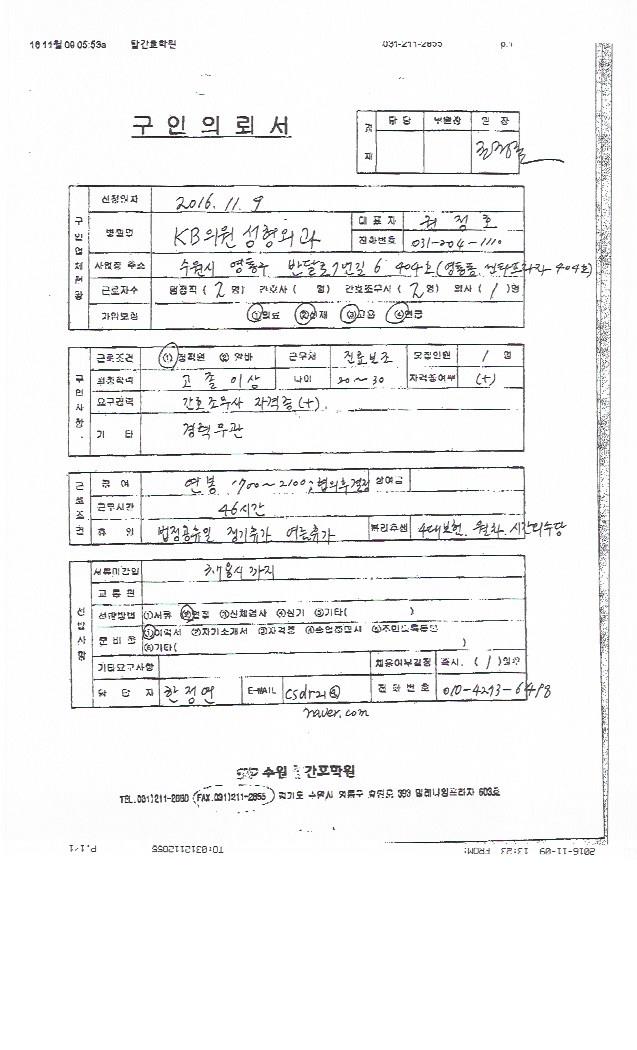 16 11월 09 05:53a 탑간호학원 031-211-2855 p.1
구인의뢰서
결재 담당 부원장 원장
신청일자 2016. 11. 9
구인업체현황
병원명 KB의원 성형외과 대표자 권정호
전화번호 031-204-1110
사업장 주소 수원시 영통구 반달로7번길 6 404호(영통동, 센타프라자 404호)
근로자수 행정직 ( 2 명) 간호사 ( 명) 간호조무사 ( 2 명) 의사 ( 1 )명
가입보험 ①의료 ②산재 ③고용 ④연금
구인사항
근로조건 ①정직원 ② 알바 근무처 진료보조 모집인원 1 명
최종학력 고졸이상 나이 20~30 자격증여부 (+)
요구경력 간호조무사 자격증(+).
기 타 경력무관
근로조건
급 여 연봉 1700~2100, 협의후결정 상여금
근무시간 46시간
휴 일 법정공휴일 정기휴가 여름휴가 복리후생 4대보험, 월차, 시간외수당
선발사항
서류마감일 채용시까지
교통편
선발방법 ①서류 ②면접 ③신체검사 ④실기 ⑤기타( )
준비물 ①이력서 ②자기소개서 ③자격증 ④졸업증명서 ⑤주민등록등본
⑥기타( )
기타요구사항 채용여부결정 즉시. ( 1 )일후
담당자 한정연 E-MAIL csdr21@ 전화번호 010-4293-6498
naver.com
수원 간호학원
TEL.031)211-2880 (FAX.031)211-2855) 경기도 수원시 영통구 효원로 393 밀레니엄프라자 603호
2016-11-09 13:23 FROM: TO:0312112855 P.1/1